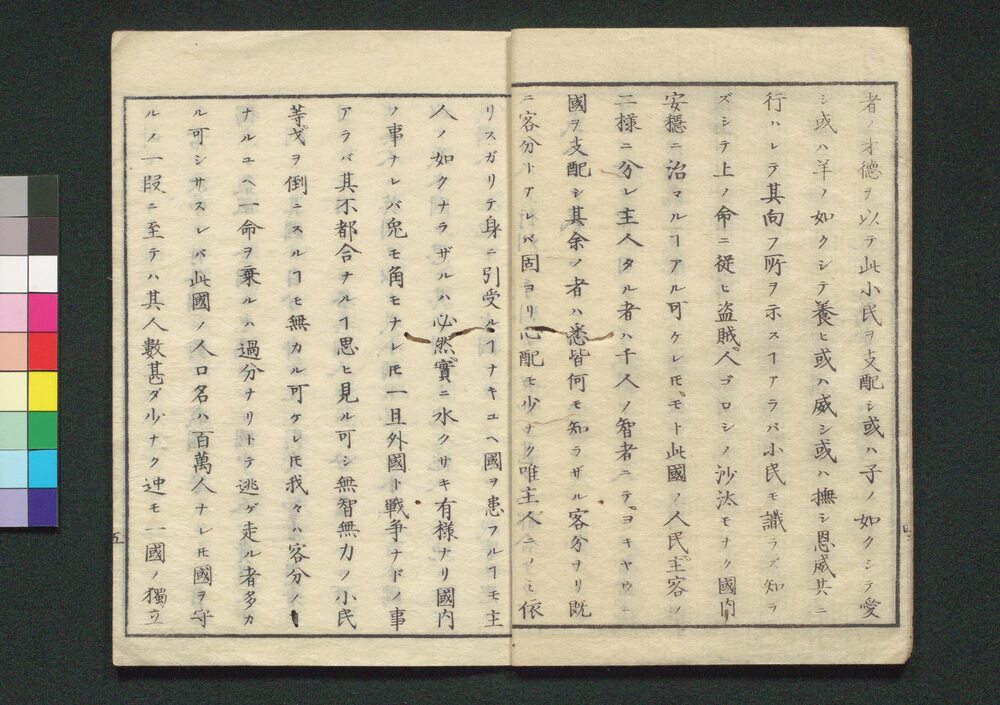 者ノ才德ヲ以テ此小民ヲ支配シ或ハ子ノ如クシテ愛
シ或ハ羊ノ如クシテ養ヒ或ハ威シ或ハ撫シ恩威共ニ
行ハレテ其向フ所ヲ示スヿアラバ小民モ識ラズ知ラ
ズシテ上ノ命ニ從ヒ盗賊、人ゴロシノ沙汰モナク國内
安穩ニ治マルヿアル可ケレ𪜈、モト此國ノ人民、主客ノ
二様ニ分レ主人タル者ハ千人ノ智者ニテ、ヨキヤウニ
國ヲ支配シ其余ノ者ハ悉皆何モ知ラザル客分ナリ既
ニ客分トアレバ固ヨリ心配モ少ナク唯主人ニノミ依
リスガリテ身ニ引受ルヿナキユヘ國ヲ患フルヿモ主
人ノ如クナラザルハ必然、實ニ水クサキ有様ナリ國内
ノ事ナレバ兎モ角モナレ𪜈一且外國ト戰争ナドノ事
アラバ其不都合ナルヿ思ヒ見ル可シ無智無力ノ小民
等戈ヲ倒ニスルヿモ無カル可ケレ𪜈我々ハ客分ノヿ
ナルユヘ一命ヲ棄ルハ過分ナリトテ逃ゲ走ル者多カ
ル可シサスレバ此國ノ人口名ハ百萬人ナレ𪜈國ヲ守
ルノ一段ニ至テハ其人數甚ダ少ナク迚モ一國ノ獨立
五